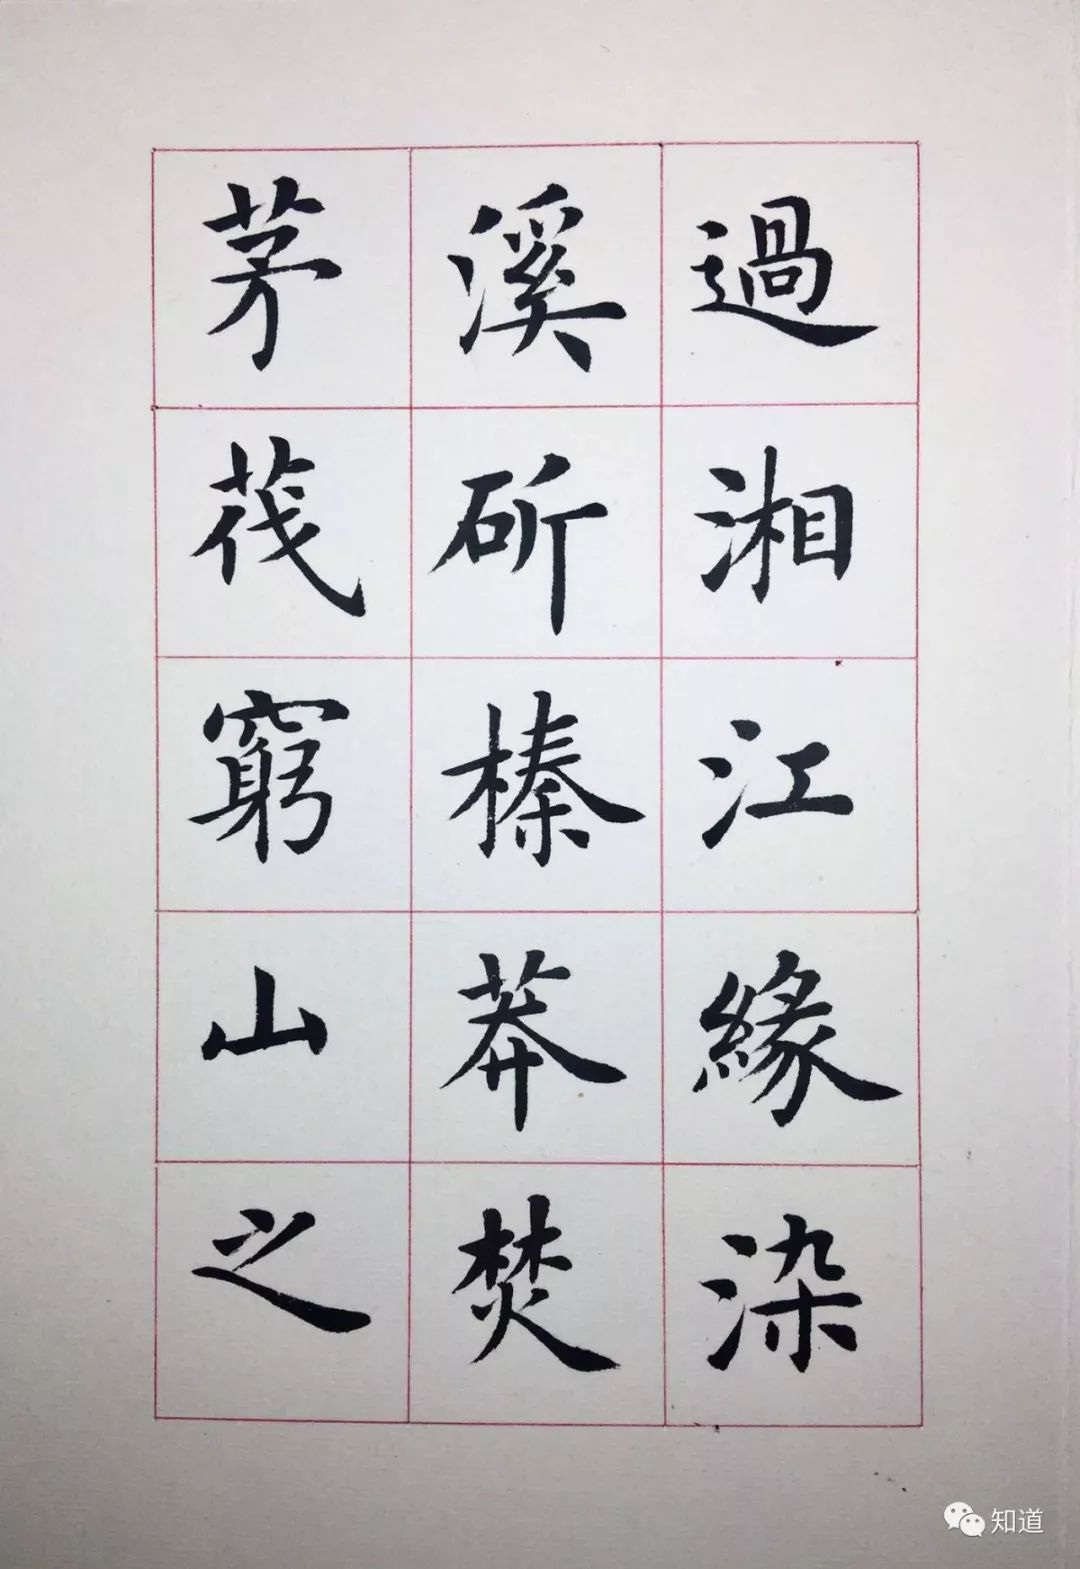 過湘江緣染
溪斫榛莽焚
茅茷窮山之
知道